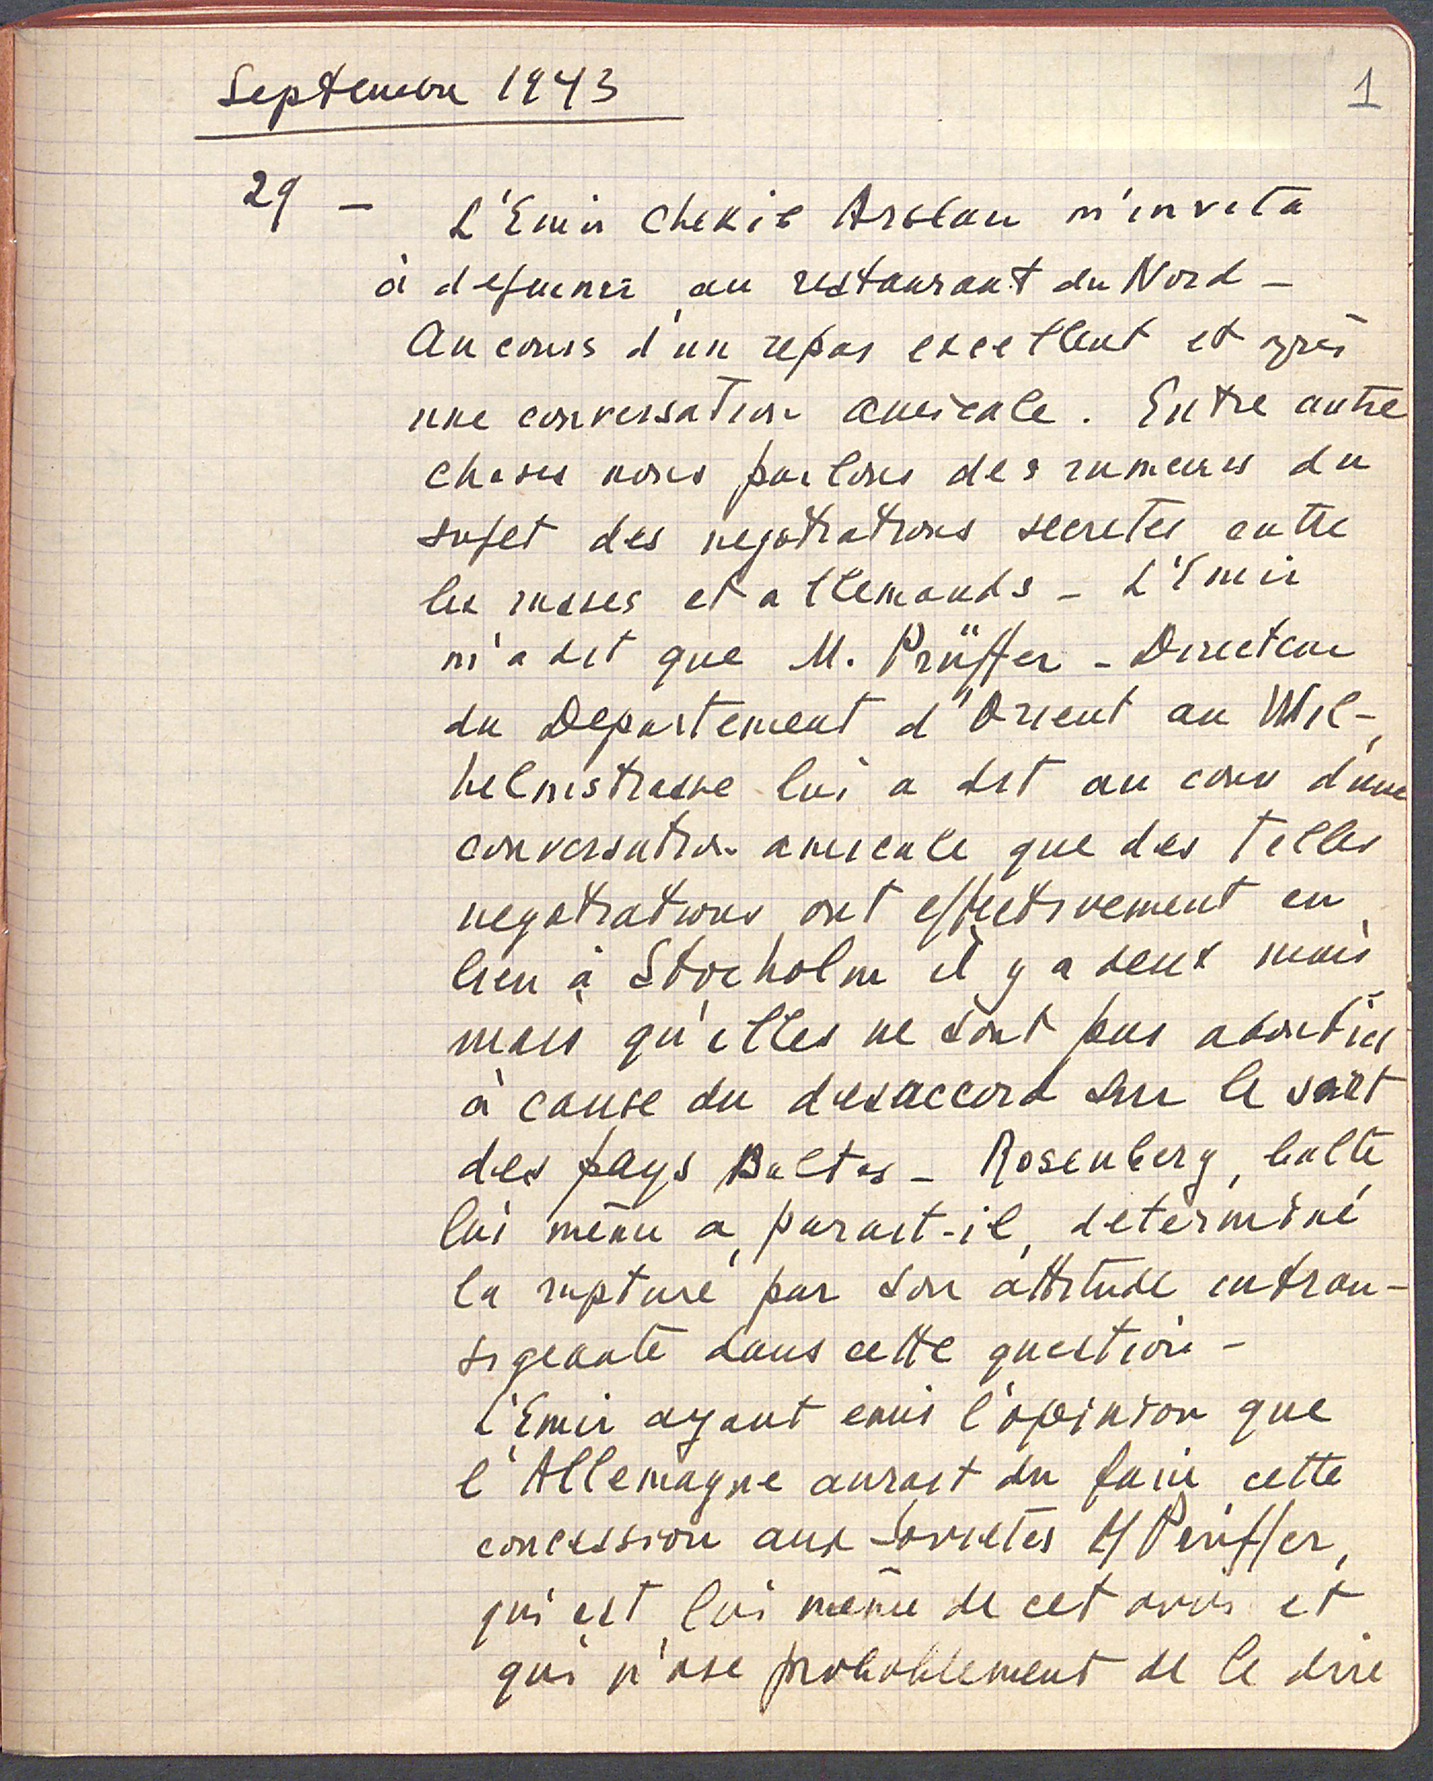 Septembre 1943
1
29 - L'Emir Chekib Arslan m'invita
à dejeuner au restaurant du Nord -
Au cours d'un repas excellent et après
une conversation amicale. Entre autre
choses nous parlons des rumeurs du
sujet des negotiations secretes entre
les russes et allemands - L'Emir
m'a dit que M. Prüffer - Directeur
du Departement d'Orient au Wil-
helmstrasse lui a dit au cour d'une
conversation amicale que des telles
negotiations ont effectivement eu
lieu à Stocholm il y a deux mois
mais qu'elles ne sont pas abouties
à cause du desaccord sur le sort
des pays Baltes - Rosenberg, balte
lui même a, parait-il, determiné
la rupture par son attitude intran-
sigeante dans cette question -
L'Emir ayant emis l'opinion que
l'Allemagne aurait du faire cette
concession aux Soviétes M Prüffer,
qui est lui même de cet avis et
qui n'ose probablement de le dire